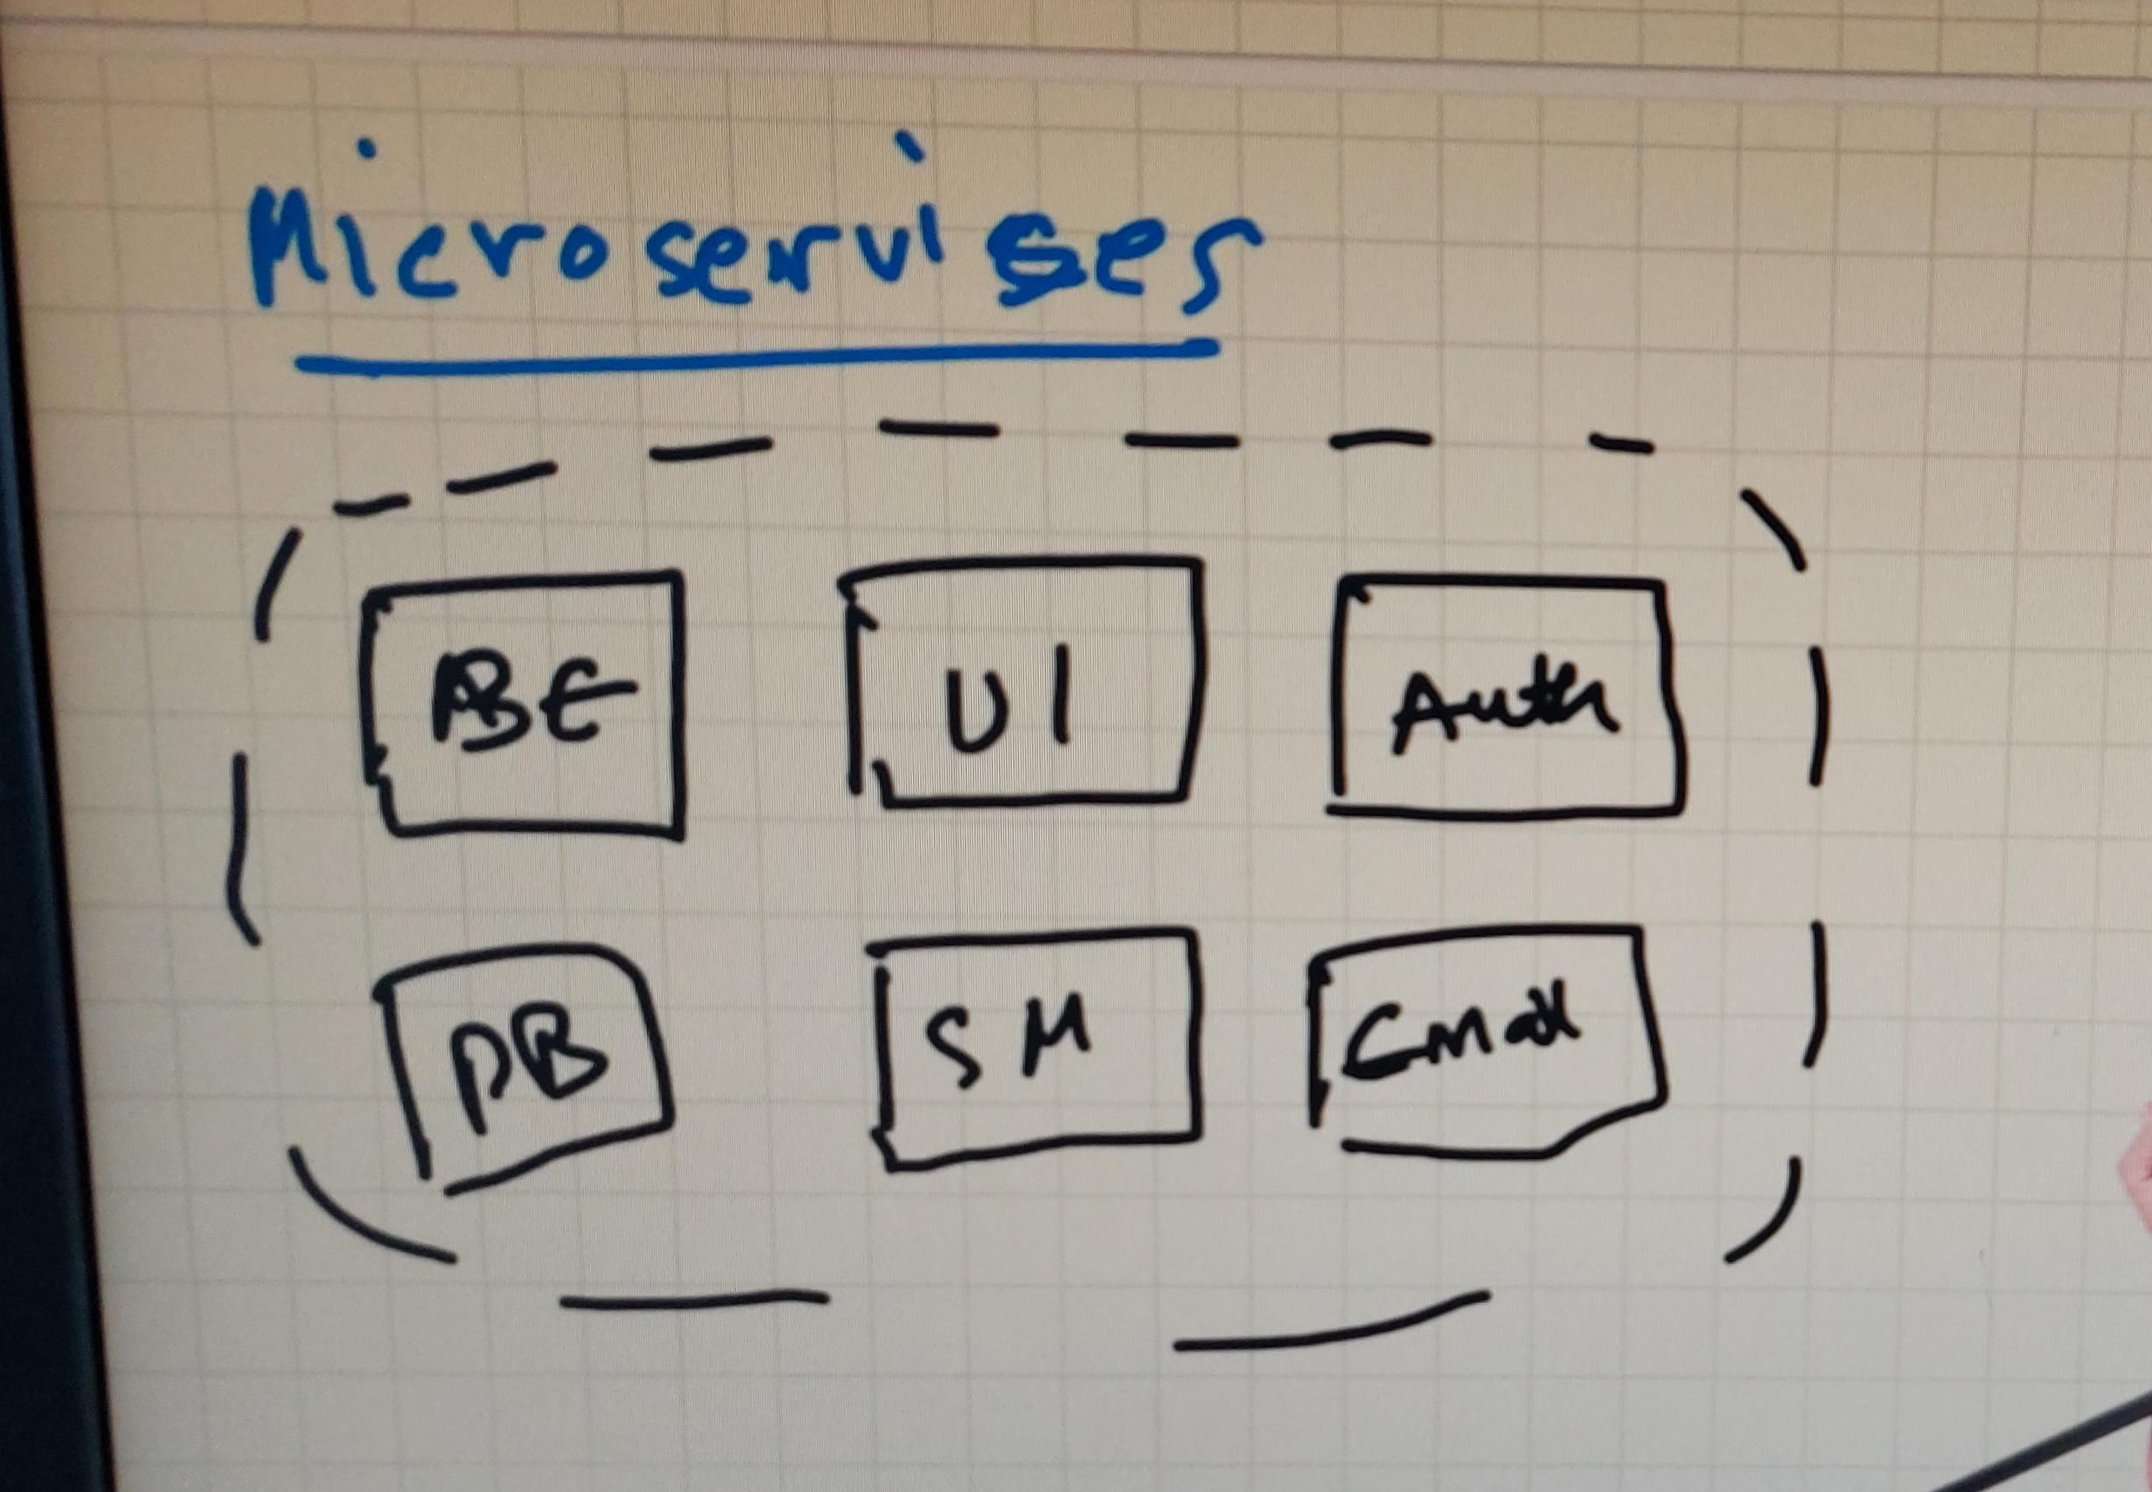 Microservises
BE UI Auth
DB SM Email